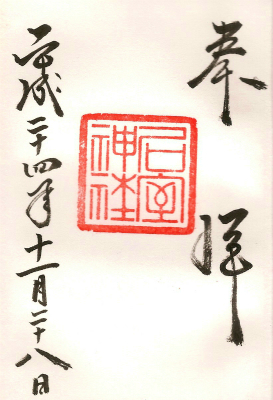 奉拝
石室神社
平成二十四年十一月二十八日